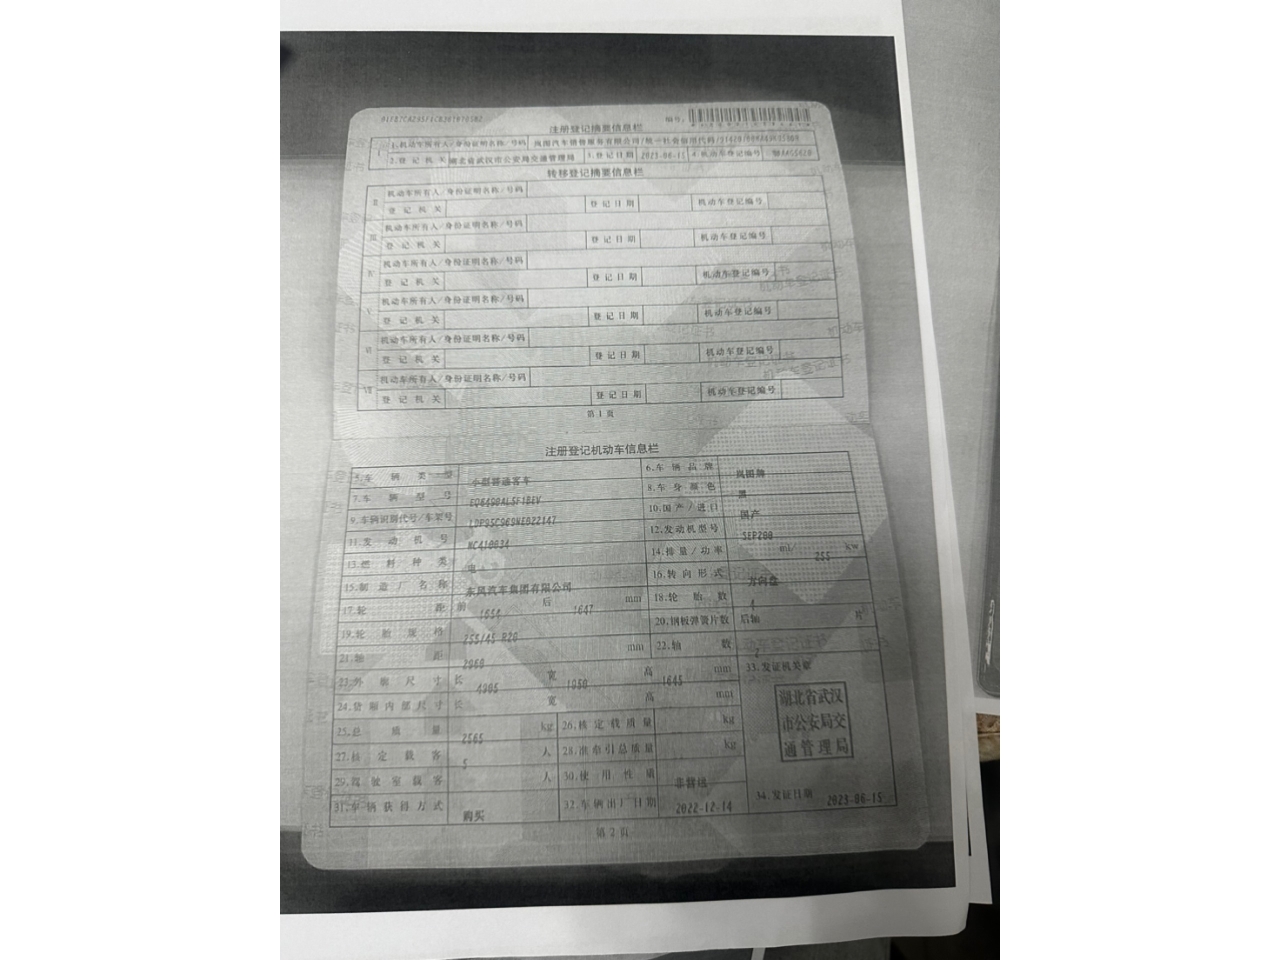 编号:
注册登记摘要信息栏
I 1.机动车所有人/身份证明名称/号码 岚图汽车销售服务有限公司/统一社会信用代码/
2.登记机关 湖北省武汉市公安局交通管理局 3.登记日期 2023-06-15 4.机动车登记编号
转移登记摘要信息栏
II 机动车所有人/身份证明名称/号码
登记机关 登记日期 机动车登记编号
III 机动车所有人/身份证明名称/号码
登记机关 登记日期 机动车登记编号
IV 机动车所有人/身份证明名称/号码
登记机关 登记日期 机动车登记编号
V 机动车所有人/身份证明名称/号码
登记机关 登记日期 机动车登记编号
VI 机动车所有人/身份证明名称/号码
登记机关 登记日期 机动车登记编号
VII 机动车所有人/身份证明名称/号码
登记机关 登记日期 机动车登记编号
第1页
注册登记机动车信息栏
5.车辆类型 小型普通客车 6.车辆品牌 岚图牌
7.车辆型号 EQ6490ALSF1BEV 8.车身颜色 黑
9.车辆识别代号/车架号 10.国产/进口 国产
11.发动机号 NC410034 12.发动机型号 SEP200
13.燃料种类 电 14.排量/功率 ml/ 255 kw
15.制造厂名称 东风汽车集团有限公司 16.转向形式 方向盘
17.轮距 前 1654 后 1647 mm 18.轮胎数 4
19.轮胎规格 255/45 R20 20.钢板弹簧片数 后轴 片
21.轴距 2960 mm 22.轴数 2
23.外廓尺寸 长 4905 宽 1950 高 1645 mm 33.发证机关章
24.货厢内部尺寸 长 宽 高 mm
湖北省武汉
市公安局交
通管理局
25.总质量 2565 kg 26.核定载质量 kg
27.核定载客 5 人 28.准牵引总质量 kg
29.驾驶室载客 人 30.使用性质 非营运
31.车辆获得方式 购买 32.车辆出厂日期 2022-12-14 34.发证日期 2023-06-15
第2页